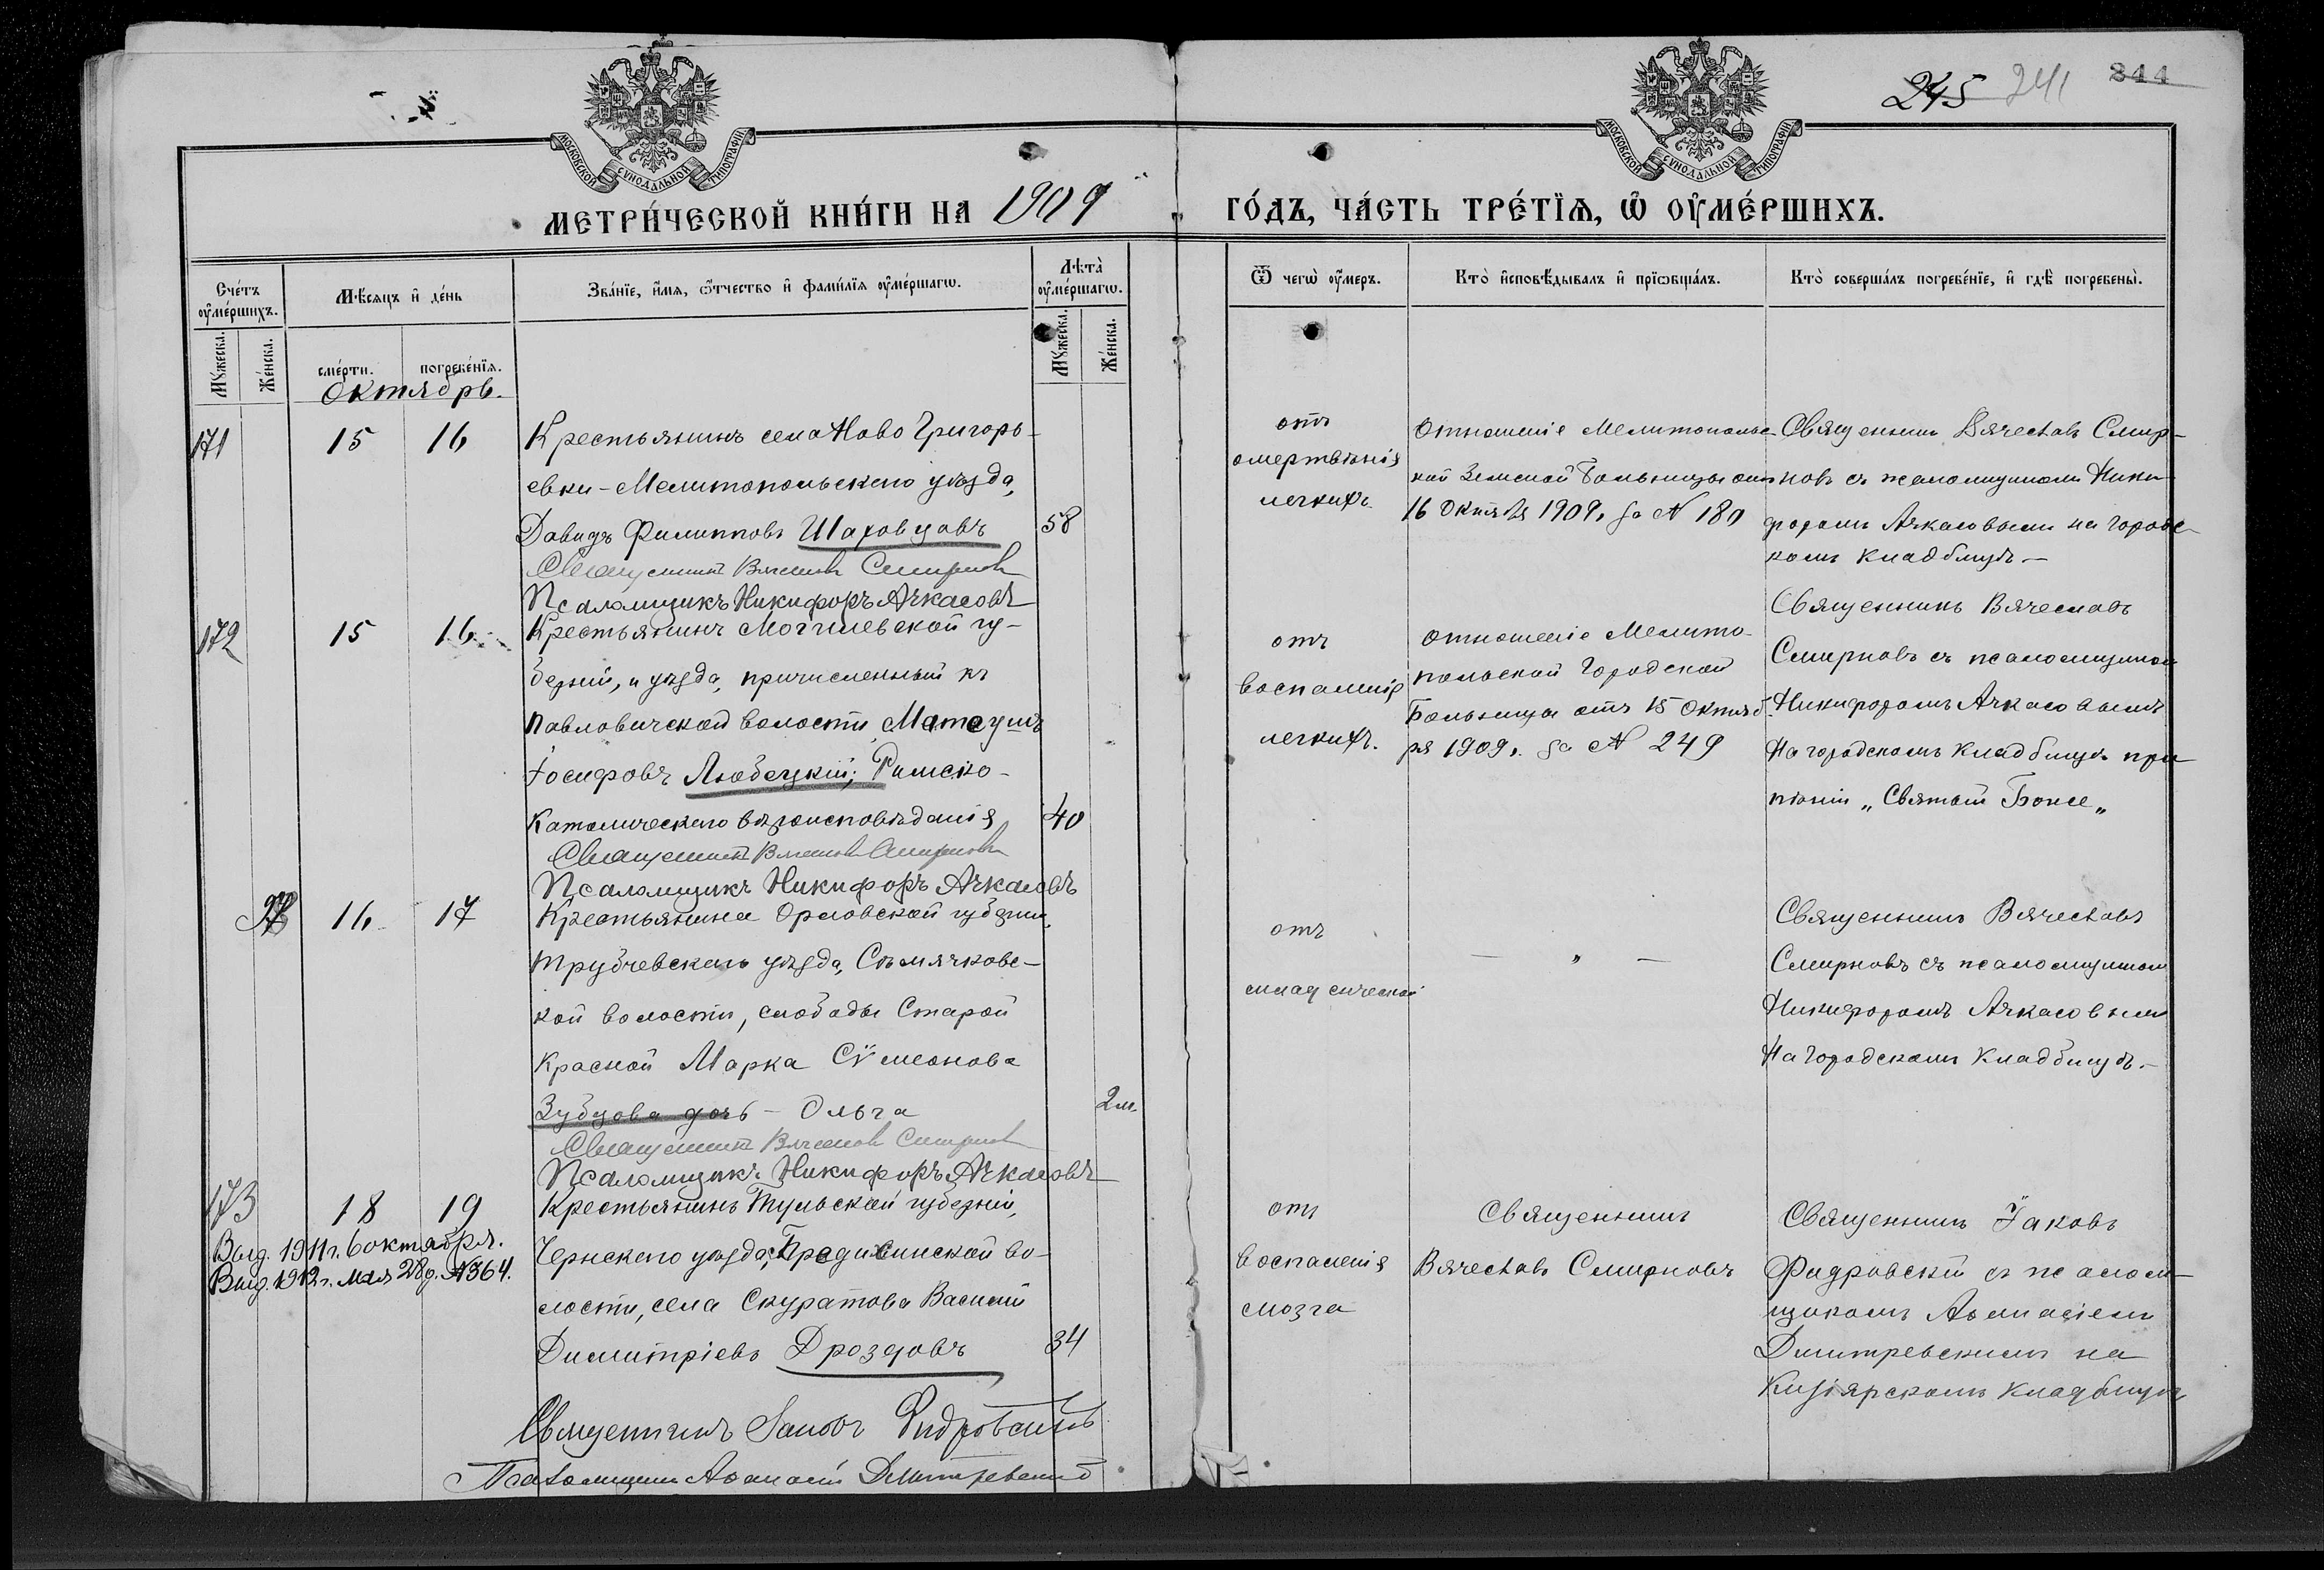 245 241 244
МОСКОВСКОЙ СѴНОДАЛЬНОЙ ТИПОГРАФІИ
МОСКОВСКОЙ СѴНОДАЛЬНОЙ ТИПОГРАФІИ
МЕТРИ́ЧЕСКОЙ КНИ́ГИ НА 1909
ГО́ДЪ, ЧА́СТЬ ТРЕ́ТЇѦ, Ѡ ОУМЕ́РШИХЪ.
Сче́тъ оумéршихъ.
Мꙋ́жеска.
Же́нска.
Мѣ́сяцъ и де́нь
сме́рти.
погребе́нїѧ.
Зва́нїе, и́мѧ, ѻ҆́тчество и фами́лїѧ оумéршагѡ.
Лѣта̀ оумéршагѡ.
Мꙋ́жеска.
Же́нска.
Ѿ чегѡ̀ оу́меръ.
Кто̀ и҆сповѣ́дывалъ и҆ прїѡбща́лъ.
Кто̀ соверша́лъ погребе́нїе, и҆ гдѣ̀ погребены̀.
Октябрь.
171
15
16
Крестьянинъ села Ново Григорь-
евки - Мелитопольскаго уѣзда,
Давидъ Филипповъ Шаховцовъ
58
Священникъ Вячеславъ Смирновъ
Псаломщикъ Никифоръ Ачкасовъ
отъ
омертвѣнія
легкихъ
Отношеніе Мелитопольс-
кой Земской Больницы отъ
16 Октября 1909 г. за № 180
Священникъ Вячеславъ Смир-
новъ съ псаломщикомъ Ники-
форомъ Ачкасовымъ на городс-
комъ кладбищѣ.—
172
15
16
Крестьянинъ Могилевской гу-
берніи, и уѣзда, причисленный къ
Павловичской волости Матеушъ
Іосифовъ Любецкій; Римско-
католическаго вѣроисповѣданія
40
Священникъ Вячеславъ Смирновъ
Псаломщикъ Никифоръ Ачкасовъ
отъ
воспаленія
легкихъ.
Отношеніе Мелито-
польской Городской
Больницы отъ 15 Октяб-
ря 1909 г. за № 249
Священникъ Вячеславъ
Смирновъ съ псаломщикомъ
Никифоромъ Ачкасовымъ
На городскомъ кладбищѣ при
пѣніи „Святый Боже„
16
17
Крестьянина Орловской губерніи,
Трубчевскаго уѣзда, Сѣмячковс-
кой волости, слободы Старой
Красной Марка Сѵмеонова
Зубцова дочь - Ольга
2 м.
Священникъ Вячеславъ Смирновъ
Псаломщикъ Никифоръ Ачкасовъ
отъ
младенческой
— „ —
Священникъ Вячеславъ
Смирновъ съ псаломщикомъ
Никифоромъ Ачкасовымъ
На Городскомъ Кладбищѣ.—
173
18
19
Выд. 1911 г. 6 октября.
Выд. 1912 г. Мая 28 д. №364.
Крестьянинъ Тульской губерніи,
Чернскаго уѣзда, во-
лости, села Скуратова Василій
Димитріевъ Дроздовъ
34
Священникъ Іаковъ Фидровскій
Псаломщикъ Аѳанасій Дмитревскій
отъ
воспаленія
мозга
Священникъ
Вячеславъ Смирновъ
Священникъ Іаковъ
Фидровскій съ псалом-
щикомъ Аѳанасіемъ
Дмитревскимъ на
Кизіярскомъ кладбищѣ